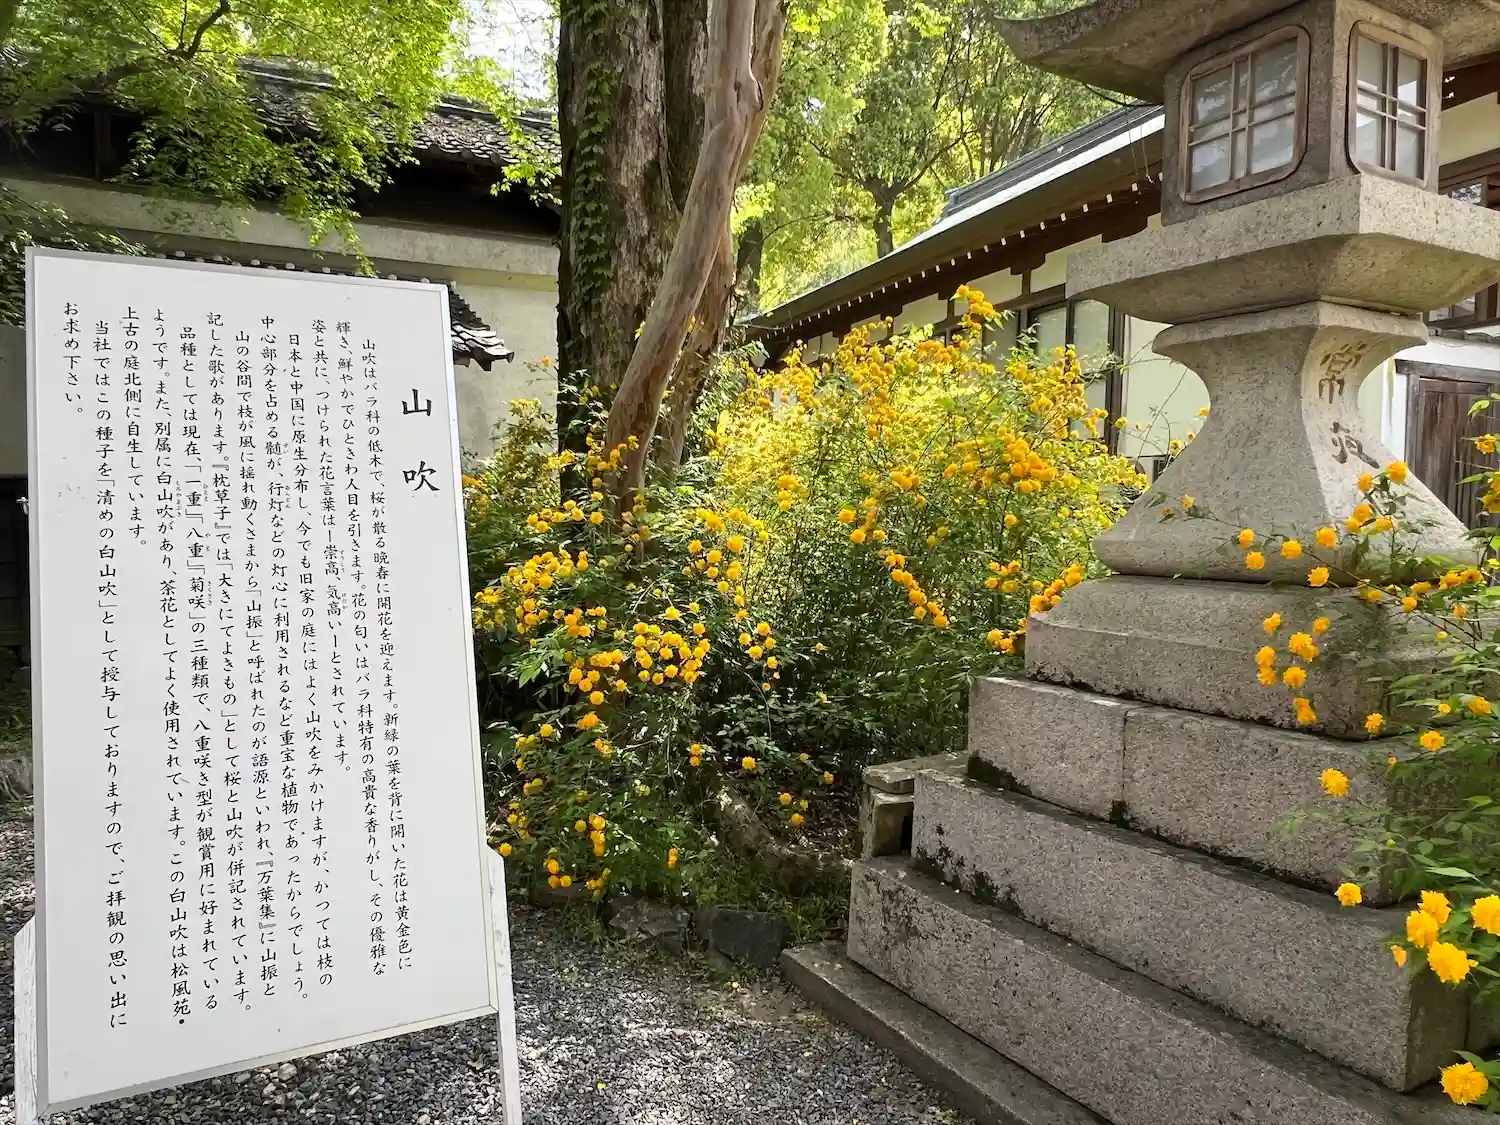 山吹
山吹はバラ科の低木で、桜が散る晩春に開花を迎えます。新緑の葉を背に開いた花は黄金色に
輝き、鮮やかでひときわ人目を引きます。花の匂いはバラ科特有の高貴な香りがし、その優雅な
姿と共に、つけられた花言葉はー崇高、気高いーとされています。
日本と中国に原生分布し、今でも旧家の庭にはよく山吹をみかけますが、かつては枝の
中心部分を占める髄が、行灯などの灯心に利用されるなど重宝な植物であったからでしょう。
山の谷間で枝が風に揺れ動くさまから「山振」と呼ばれたのが語源といわれ、『万葉集』に山振と
記した歌があります。『枕草子』では「大きにてよきもの」として桜と山吹が併記されています。
品種としては現在、「一重」「八重」「菊咲」の三種類で、八重咲き型が観賞用に好まれている
ようです。また、別属に白山吹があり、茶花としてよく使用されています。この白山吹は松風苑・
上古の庭北側に自生しています。
当社ではこの種子を「清めの白山吹」として授与しておりますので、ご拝観の思い出に
お求め下さい。
常夜